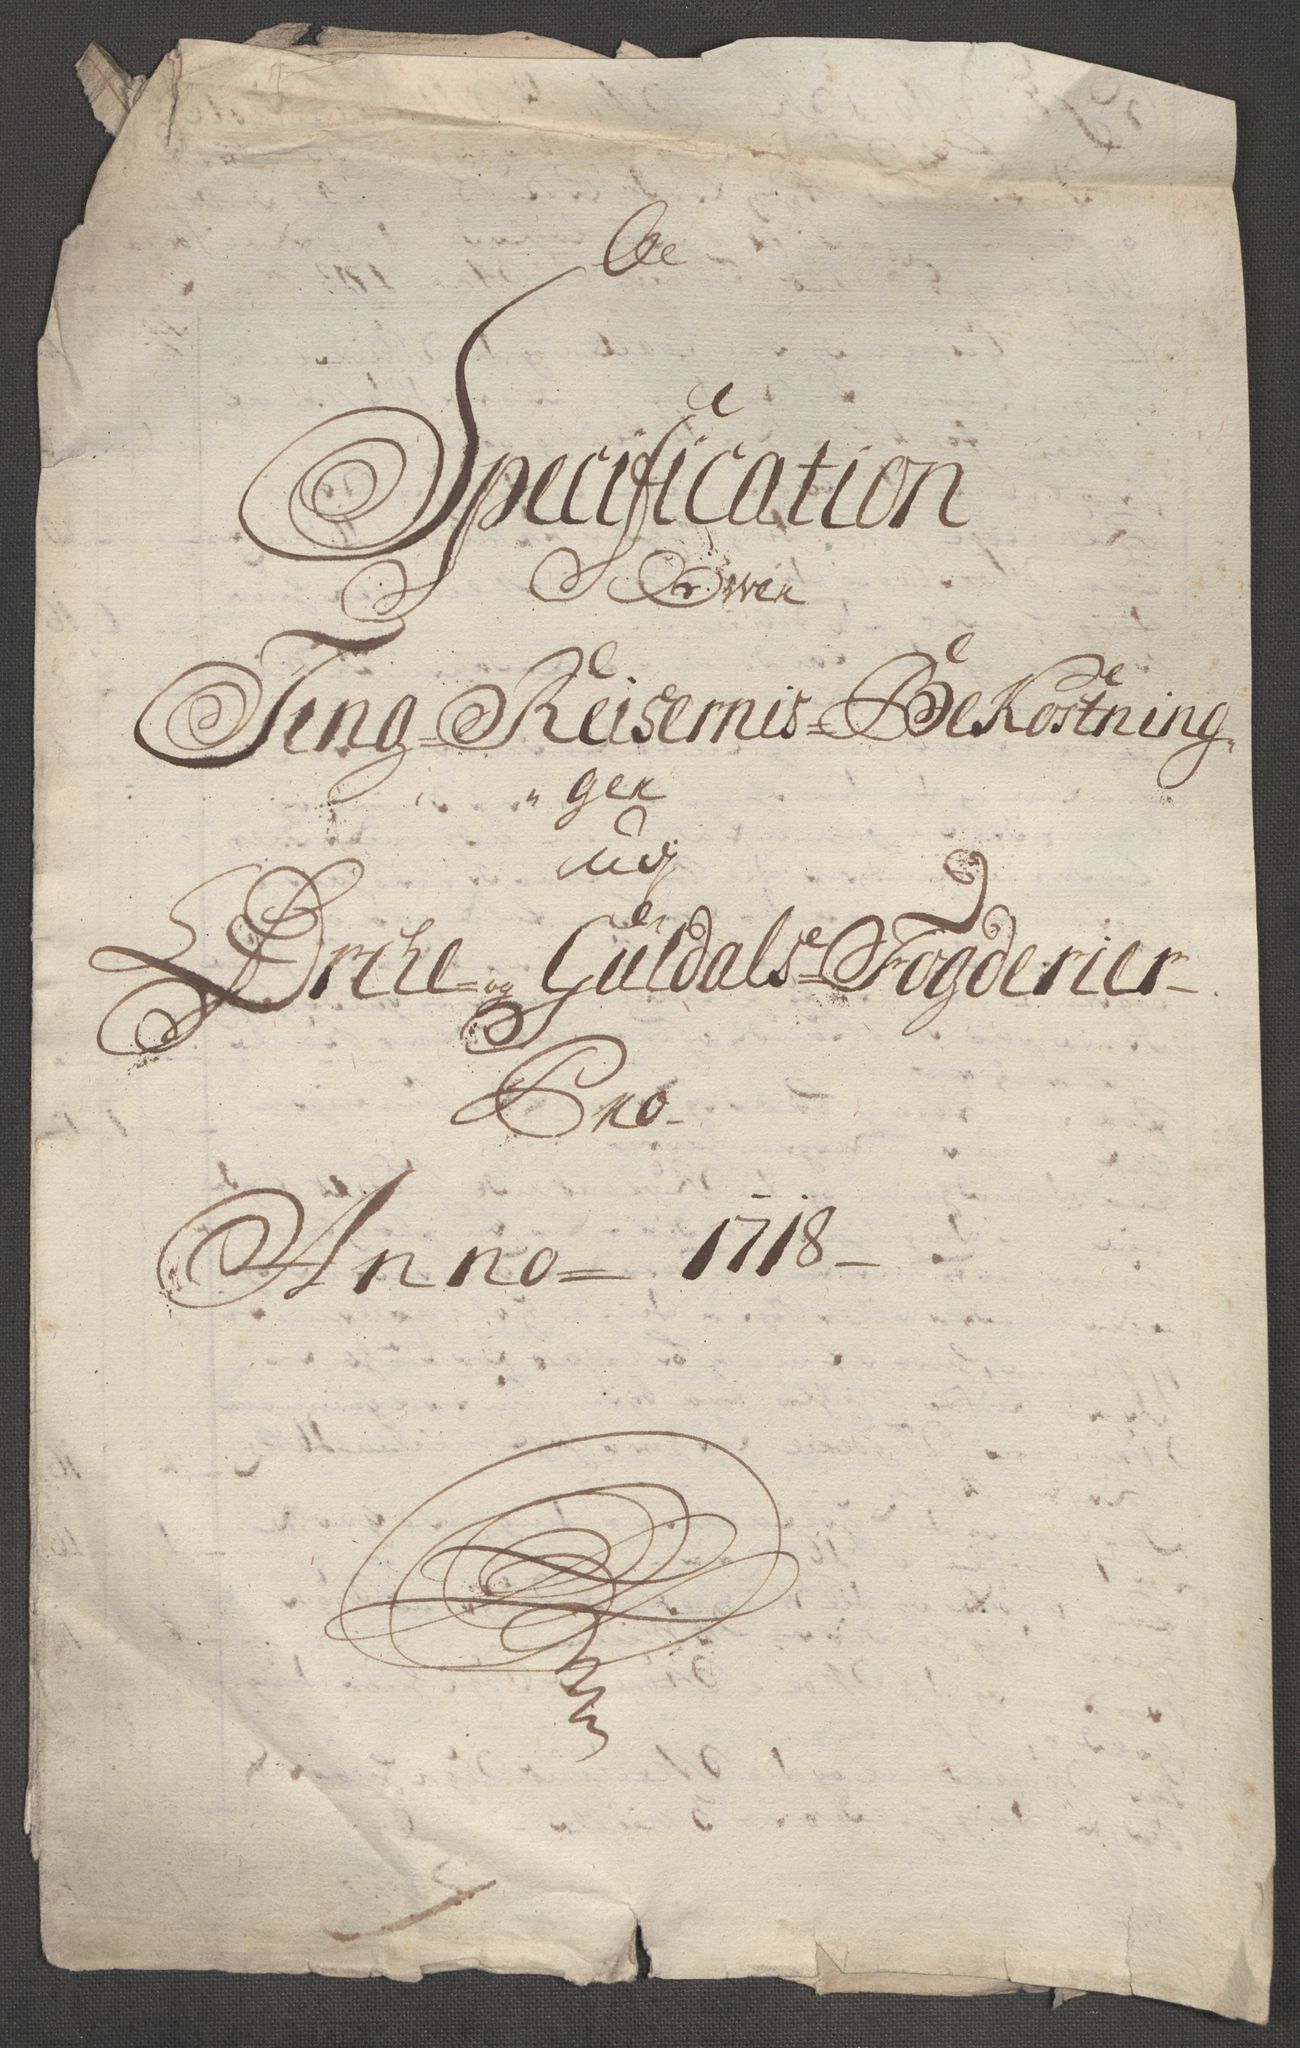 Specification
Ofwer
Ting-Reisernis-Bekostning-
ger
udj
Orche- og Guldals-Fogderier-
Pro-
Anno- 1718-